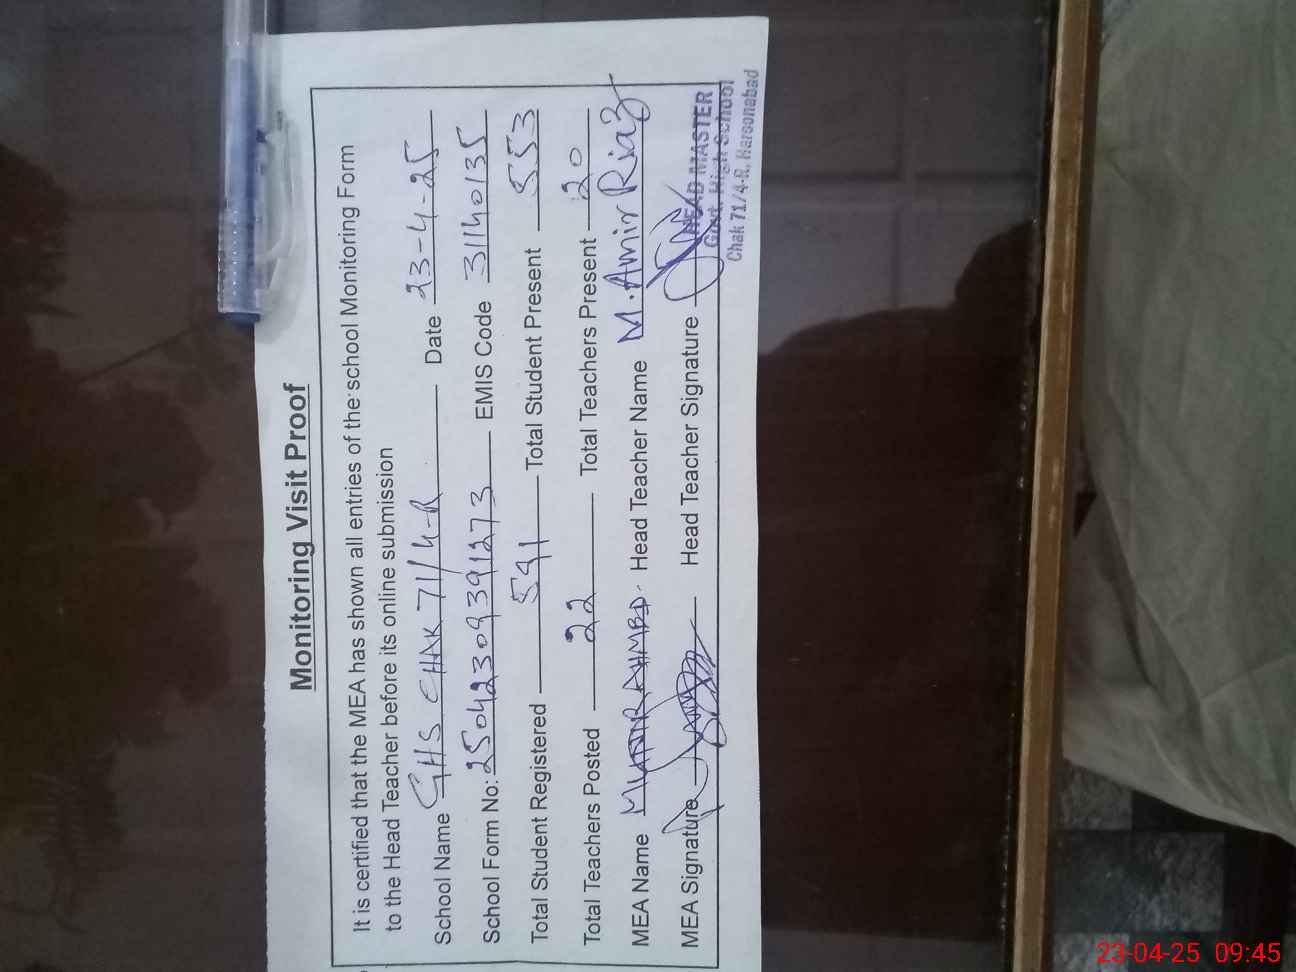 Monitoring Visit Proof
It is certified that the MEA has shown all entries of the school Monitoring Form
to the Head Teacher before its online submission
School Name GHS CHAK 71/4-R Date 23-4-25
School Form No: 25042309391273 EMIS Code 31140135
Total Student Registered 591 Total Student Present 553
Total Teachers Posted 22 Total Teachers Present 20
MEA Name AHMED. Head Teacher Name M. Amir Riaz
MEA Signature Head Teacher Signature
HEAD MASTER
Govt. High School
Chak 71/4-R, Haroonabad
23-04-25 09:45